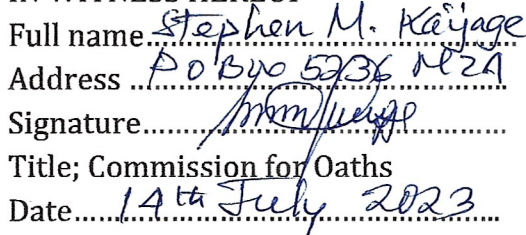 IN WITNESS HEREOF
Full name Stephen M. Kaijage
Address P O Box 5236 MZA
Signature
Title; Commission for Oaths
Date 14th July 2023